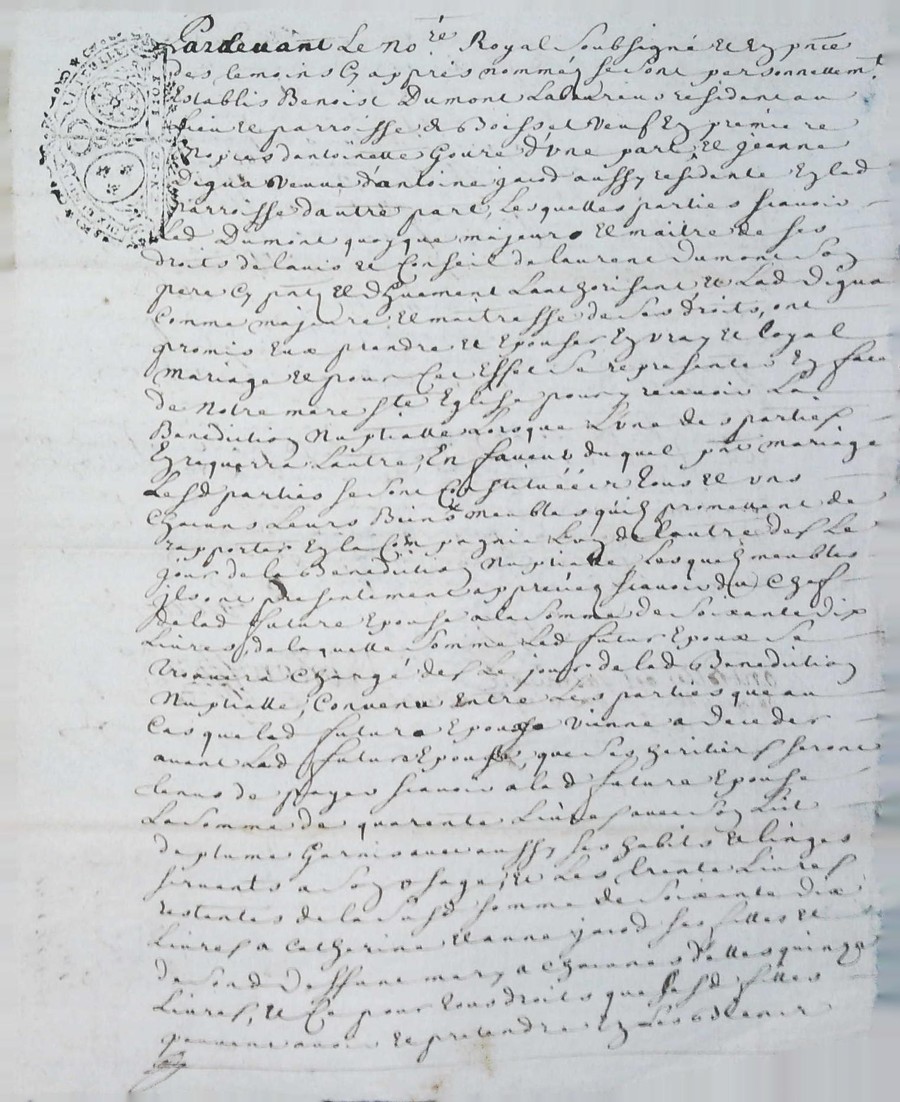 Pardevant Le no.re Royal Soubsigné Et En pnce
des temoins Cy apprés nommés se sont personnellem.t
Establis Benoist Dumont Laboureur residant au
lieu et parroisse de Boisset veuf En premiere
Nopces d'antoinette Goure d'vne part, Et jeanne
Digua veuue d'antoine jacod aussy residente En lad
Parroisse d'autre part, Lesquelles parties scauoir
Led Dumont quoyque majeur Et maitre de ses
droits de l'auis et Conseil de laurent dumont Son
pere Cy pnt Et dhuement L'authorisant et Lad digua
Comme majeure Et maitresse de Ses droits, ont
promis Eux prendre et Epouser En vray Et loyal
mariage et pour Cet Effet Se representer En face
de notre mere ste Eglise pour y receuoir La
Benediction Nuptialle Lorsque L'vne des parties
En requerra L'autre, En faveur duquel pnt mariage
Lesd parties se sont Constituéés tous et vns
Chacuns Leurs Biens meubles quils promettent de
rapporter En la Compagnie L'un de l'autre des Le
jour de la Benediction Nuptialle Lesquels meubles
ils ont presentement appreciés scauoir du Chef
de lad future Epouse a la Somme de Soixante dix
Livres, de laquelle Somme Led futur Epoux Se
trouuera Chargé des Le jour de lad Benediction
Nuptialle, Convenu Entre Les parties que au
Cas que led futur Epoux vienne a deceder
auant Lad future Epouse, que Ses heritiers seront
tenus de payer scauoir a lad future Epouse
La Somme de quarente Liures auec Son Lit
de plume Garni auec aussy Ses habits Et linges
seruants a Son vsage, Et Les trente Liures
restentes de la Susd Somme de Soixante dix
Liures a Catherine Et anne jacod ses filles et
de Sond deffunt mary a chacunes d'elles quinze
Liures, Et Ce pour tous droits que Lesd filles
peuvent auoir Et pretendre En Les